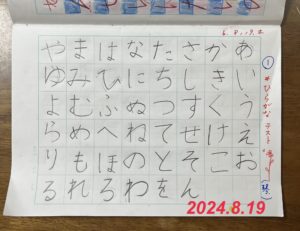 ① *ひらがな テスト
あいうえお
かきくけこ
さしすせそん
たちつてとを
なにぬねのわ
はひふへほろ
まみむめもれ
やゆよらりる
2024.8.19